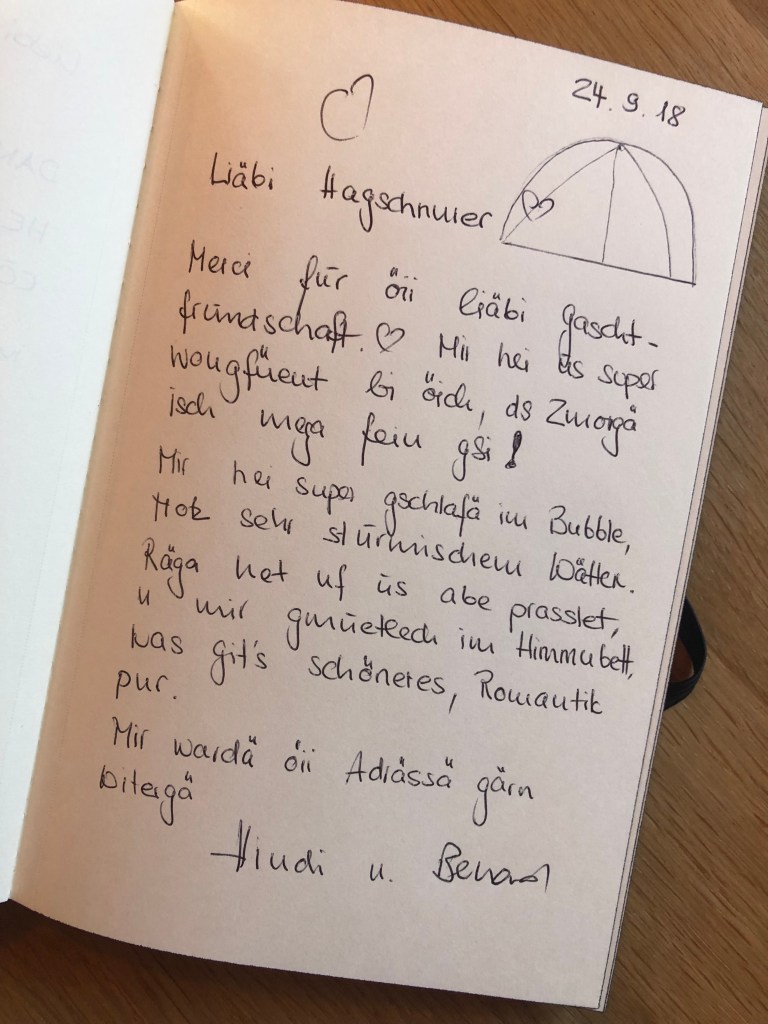 24.9.18
Liäbi Hagschnuier
Merci für öii liäbi Gascht-
fründschaft. ♡ Mir hei üs super
wougfüeut bi öich, ds Zmorgä
isch mega fein gsi!
Mir hei super gschlafä im Bubble,
trotz sehr stürmischem Wätter.
Räga het uf üs abe prasslet,
u mir gmüetlech im Himmubett,
was git's schöneres, Romantik
pur.
Mir wärdä öii Adrässä gärn
witergä
u.